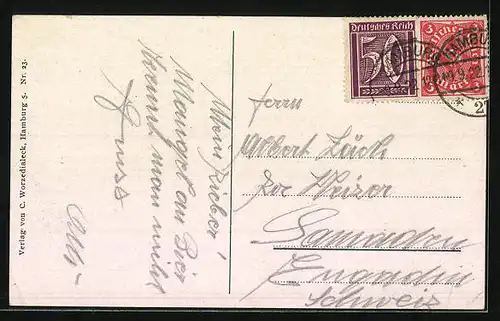 Verlag von C. Worzedialeck, Hamburg 5. Nr. 23.
Mein Lieber!
Mangel an Bier
kennt man nicht
Gruss
Otto
Deutsches Reich
50
3
3
HAMBURG
Herrn
Albert
Samaden
Engadin
Schweiz